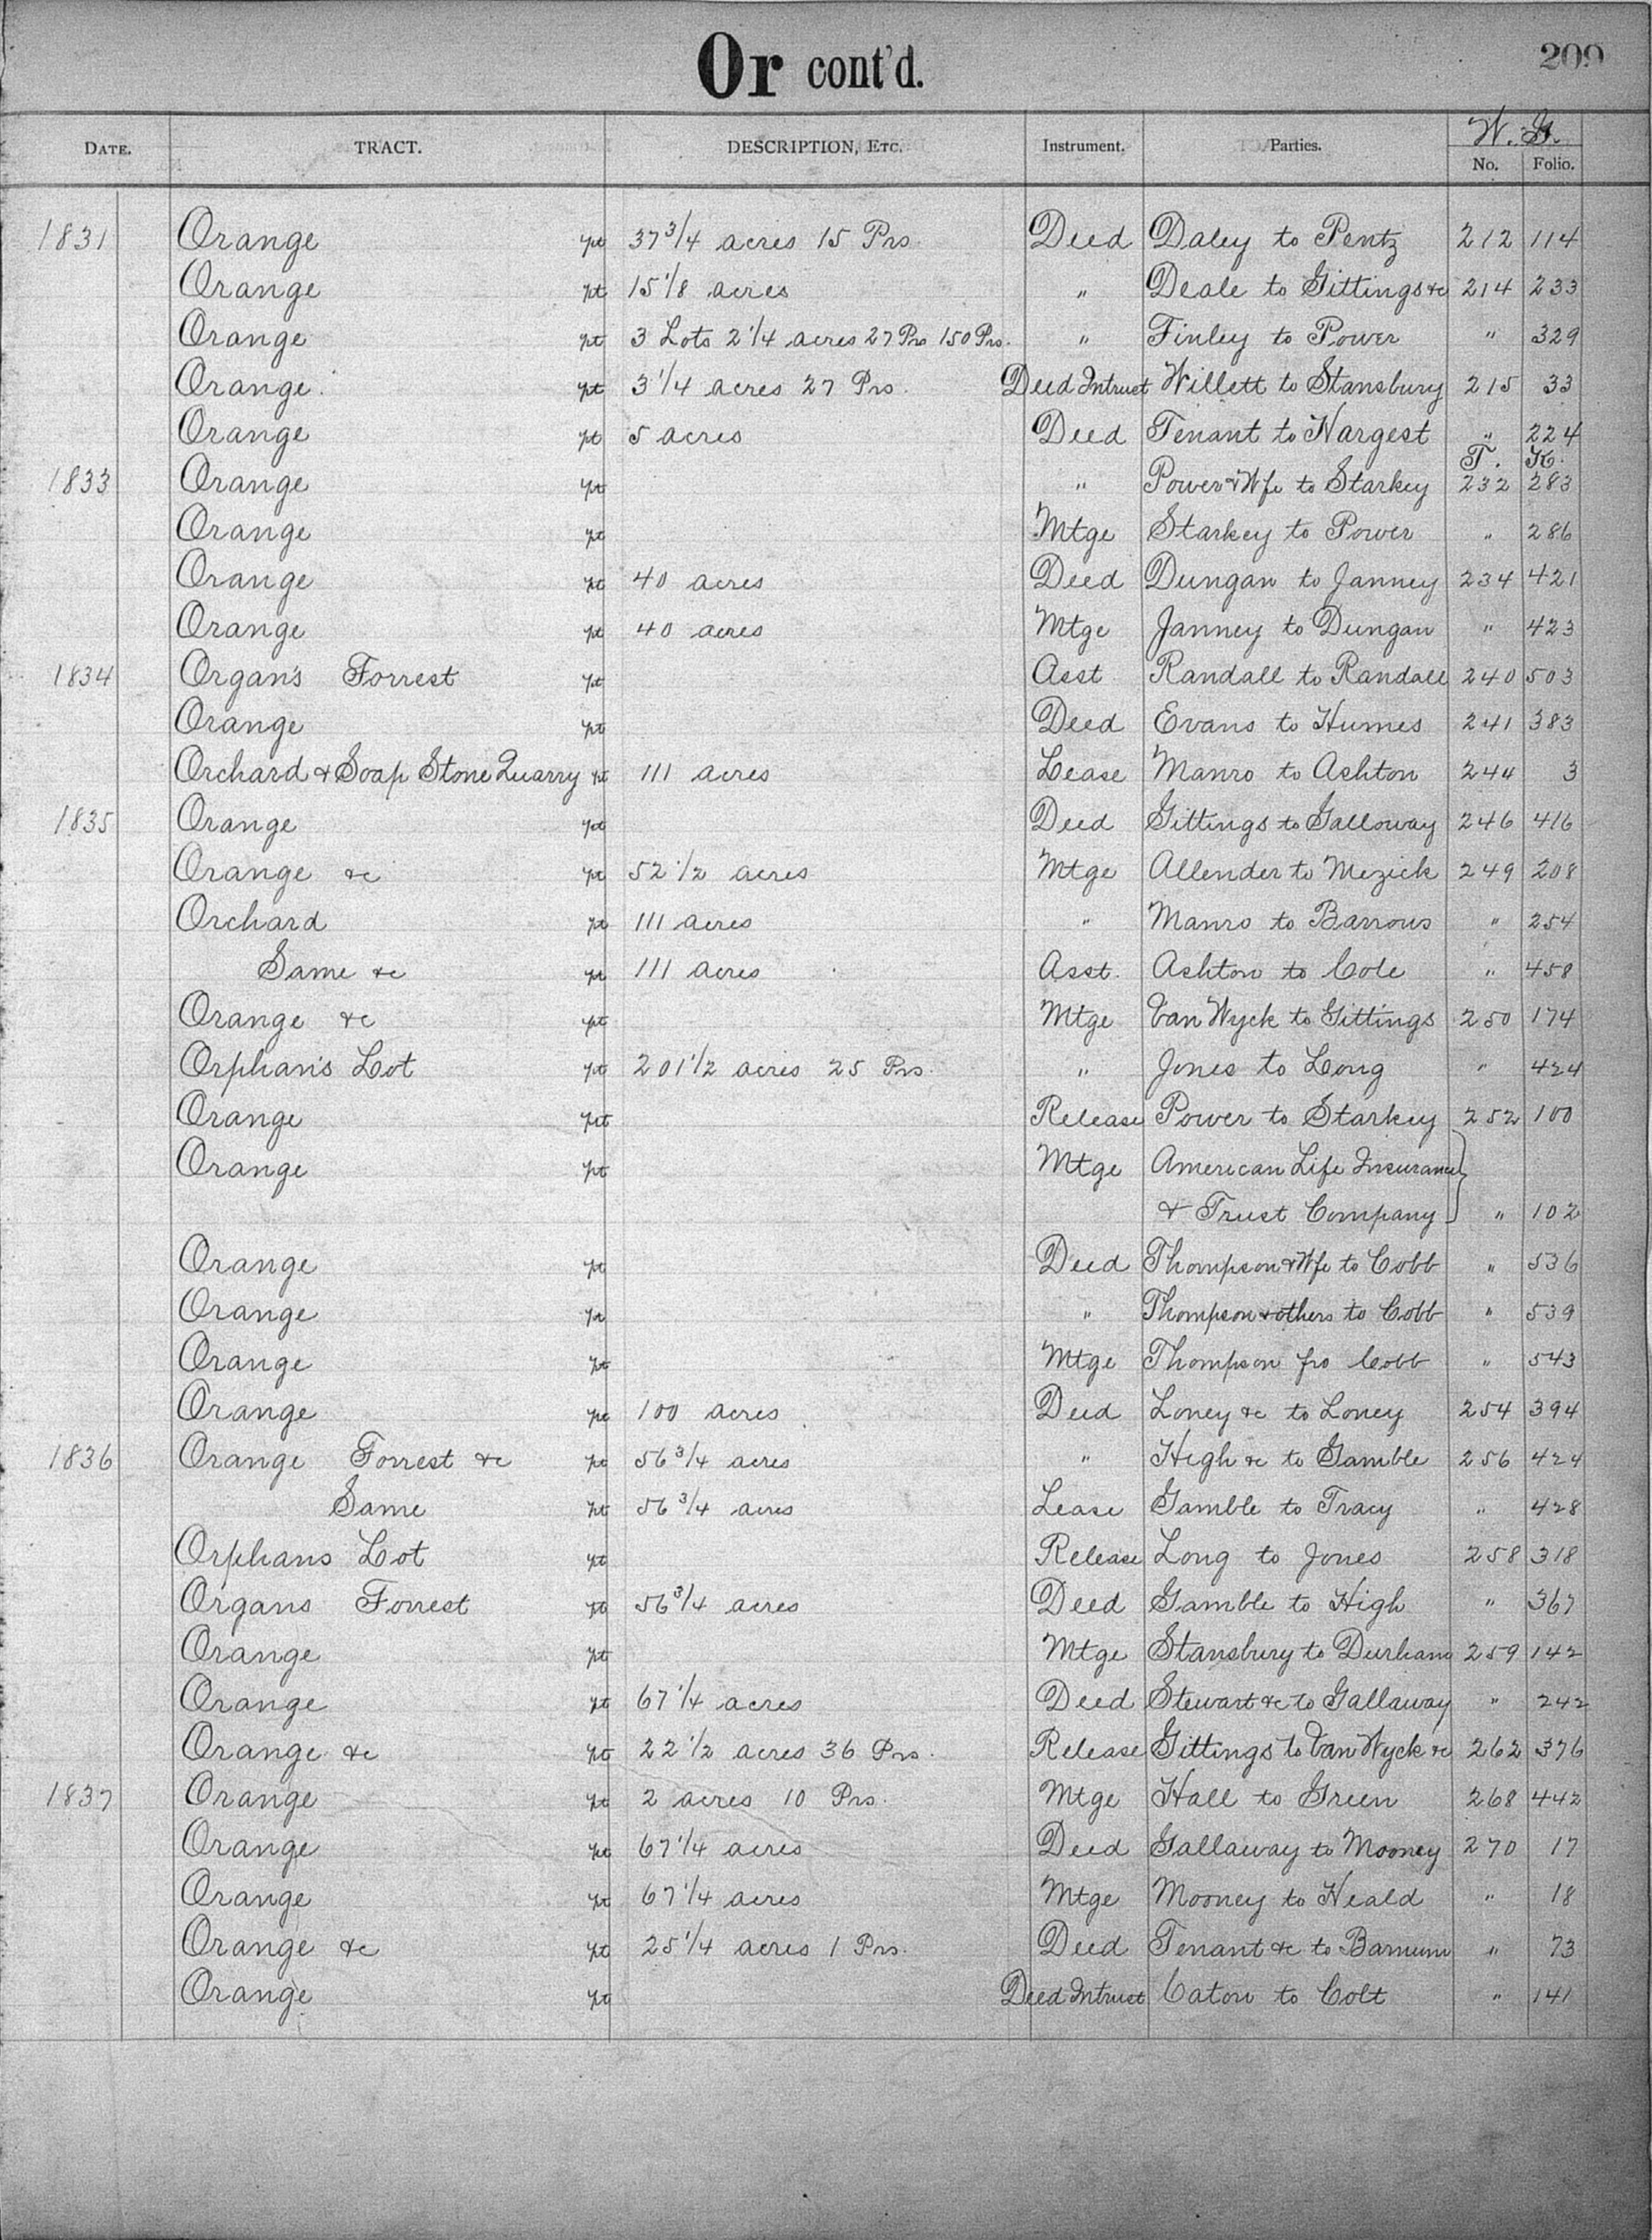 Or cont'd.
209
DATE. TRACT. DESCRIPTION, ETC. Instrument. Parties. W. G.
No. Folio.
1831 Orange pt 37 3/4 acres 15 Prs. Deed Daley to Pentz 212 114
Orange pt 15 1/8 acres " Deale to Gittings &c 214 233
Orange pt 3 Lots 2 1/4 acres 27 Prs 150 Prs. " Finley to Power " 329
Orange pt 3 1/4 acres 27 Prs. Deed Intrust Willett to Stansbury 215 33
Orange pt 5 acres Deed Tenant to Hargest " 224
T. K.
1833 Orange pt " Power & Wfe to Starkey 232 283
Orange pt Mtge Starkey to Power " 286
Orange pt 40 acres Deed Dungan to Janney 234 421
Orange pt 40 acres Mtge Janney to Dungan " 423
1834 Organ's Forrest pt Asst Randall to Randall 240 503
Orange pt Deed Evans to Humes 241 383
Orchard & Soap Stone Quarry pt 111 acres Lease Manro to Ashton 244 3
1835 Orange pt Deed Gittings to Galloway 246 416
Orange &c pt 52 1/2 acres Mtge Allender to Mezick 249 208
Orchard pt 111 acres " Manro to Barrows " 254
Same &c pt 111 acres Asst. Ashton to Cole " 458
Orange &c pt Mtge Van Wyck to Gittings 250 174
Orphan's Lot pt 201 1/2 acres 25 Prs. " Jones to Long " 424
Orange pt Release Power to Starkey 252 100
Orange pt Mtge American Life Insurance
& Trust Company " 102
Orange pt Deed Thompson & Wfe to Cobb " 536
Orange pt " Thompson & others to Cobb " 539
Orange pt Mtge Thompson fro Cobb " 543
Orange pt 100 acres Deed Loney &c to Loney 254 394
1836 Orange Forrest &c pt 56 3/4 acres " High &c to Gamble 256 424
Same pt 56 3/4 acres Lease Gamble to Tracy " 428
Orphans Lot pt Release Long to Jones 258 318
Organs Forrest pt 56 3/4 acres Deed Gamble to High " 367
Orange pt Mtge Stansbury to Durham 259 142
Orange pt 67 1/4 acres Deed Stewart &c to Gallaway " 242
Orange &c pt 22 1/2 acres 36 Prs. Release Gittings to Van Wyck &c 262 376
1837 Orange pt 2 acres 10 Prs. Mtge Hall to Green 268 442
Orange pt 67 1/4 acres Deed Gallaway to Mooney 270 17
Orange pt 67 1/4 acres Mtge Mooney to Heald " 18
Orange &c pt 25 1/4 acres 1 Prs. Deed Tenant &c to Barnum " 73
Orange pt Deed Intrust Caton to Colt " 141